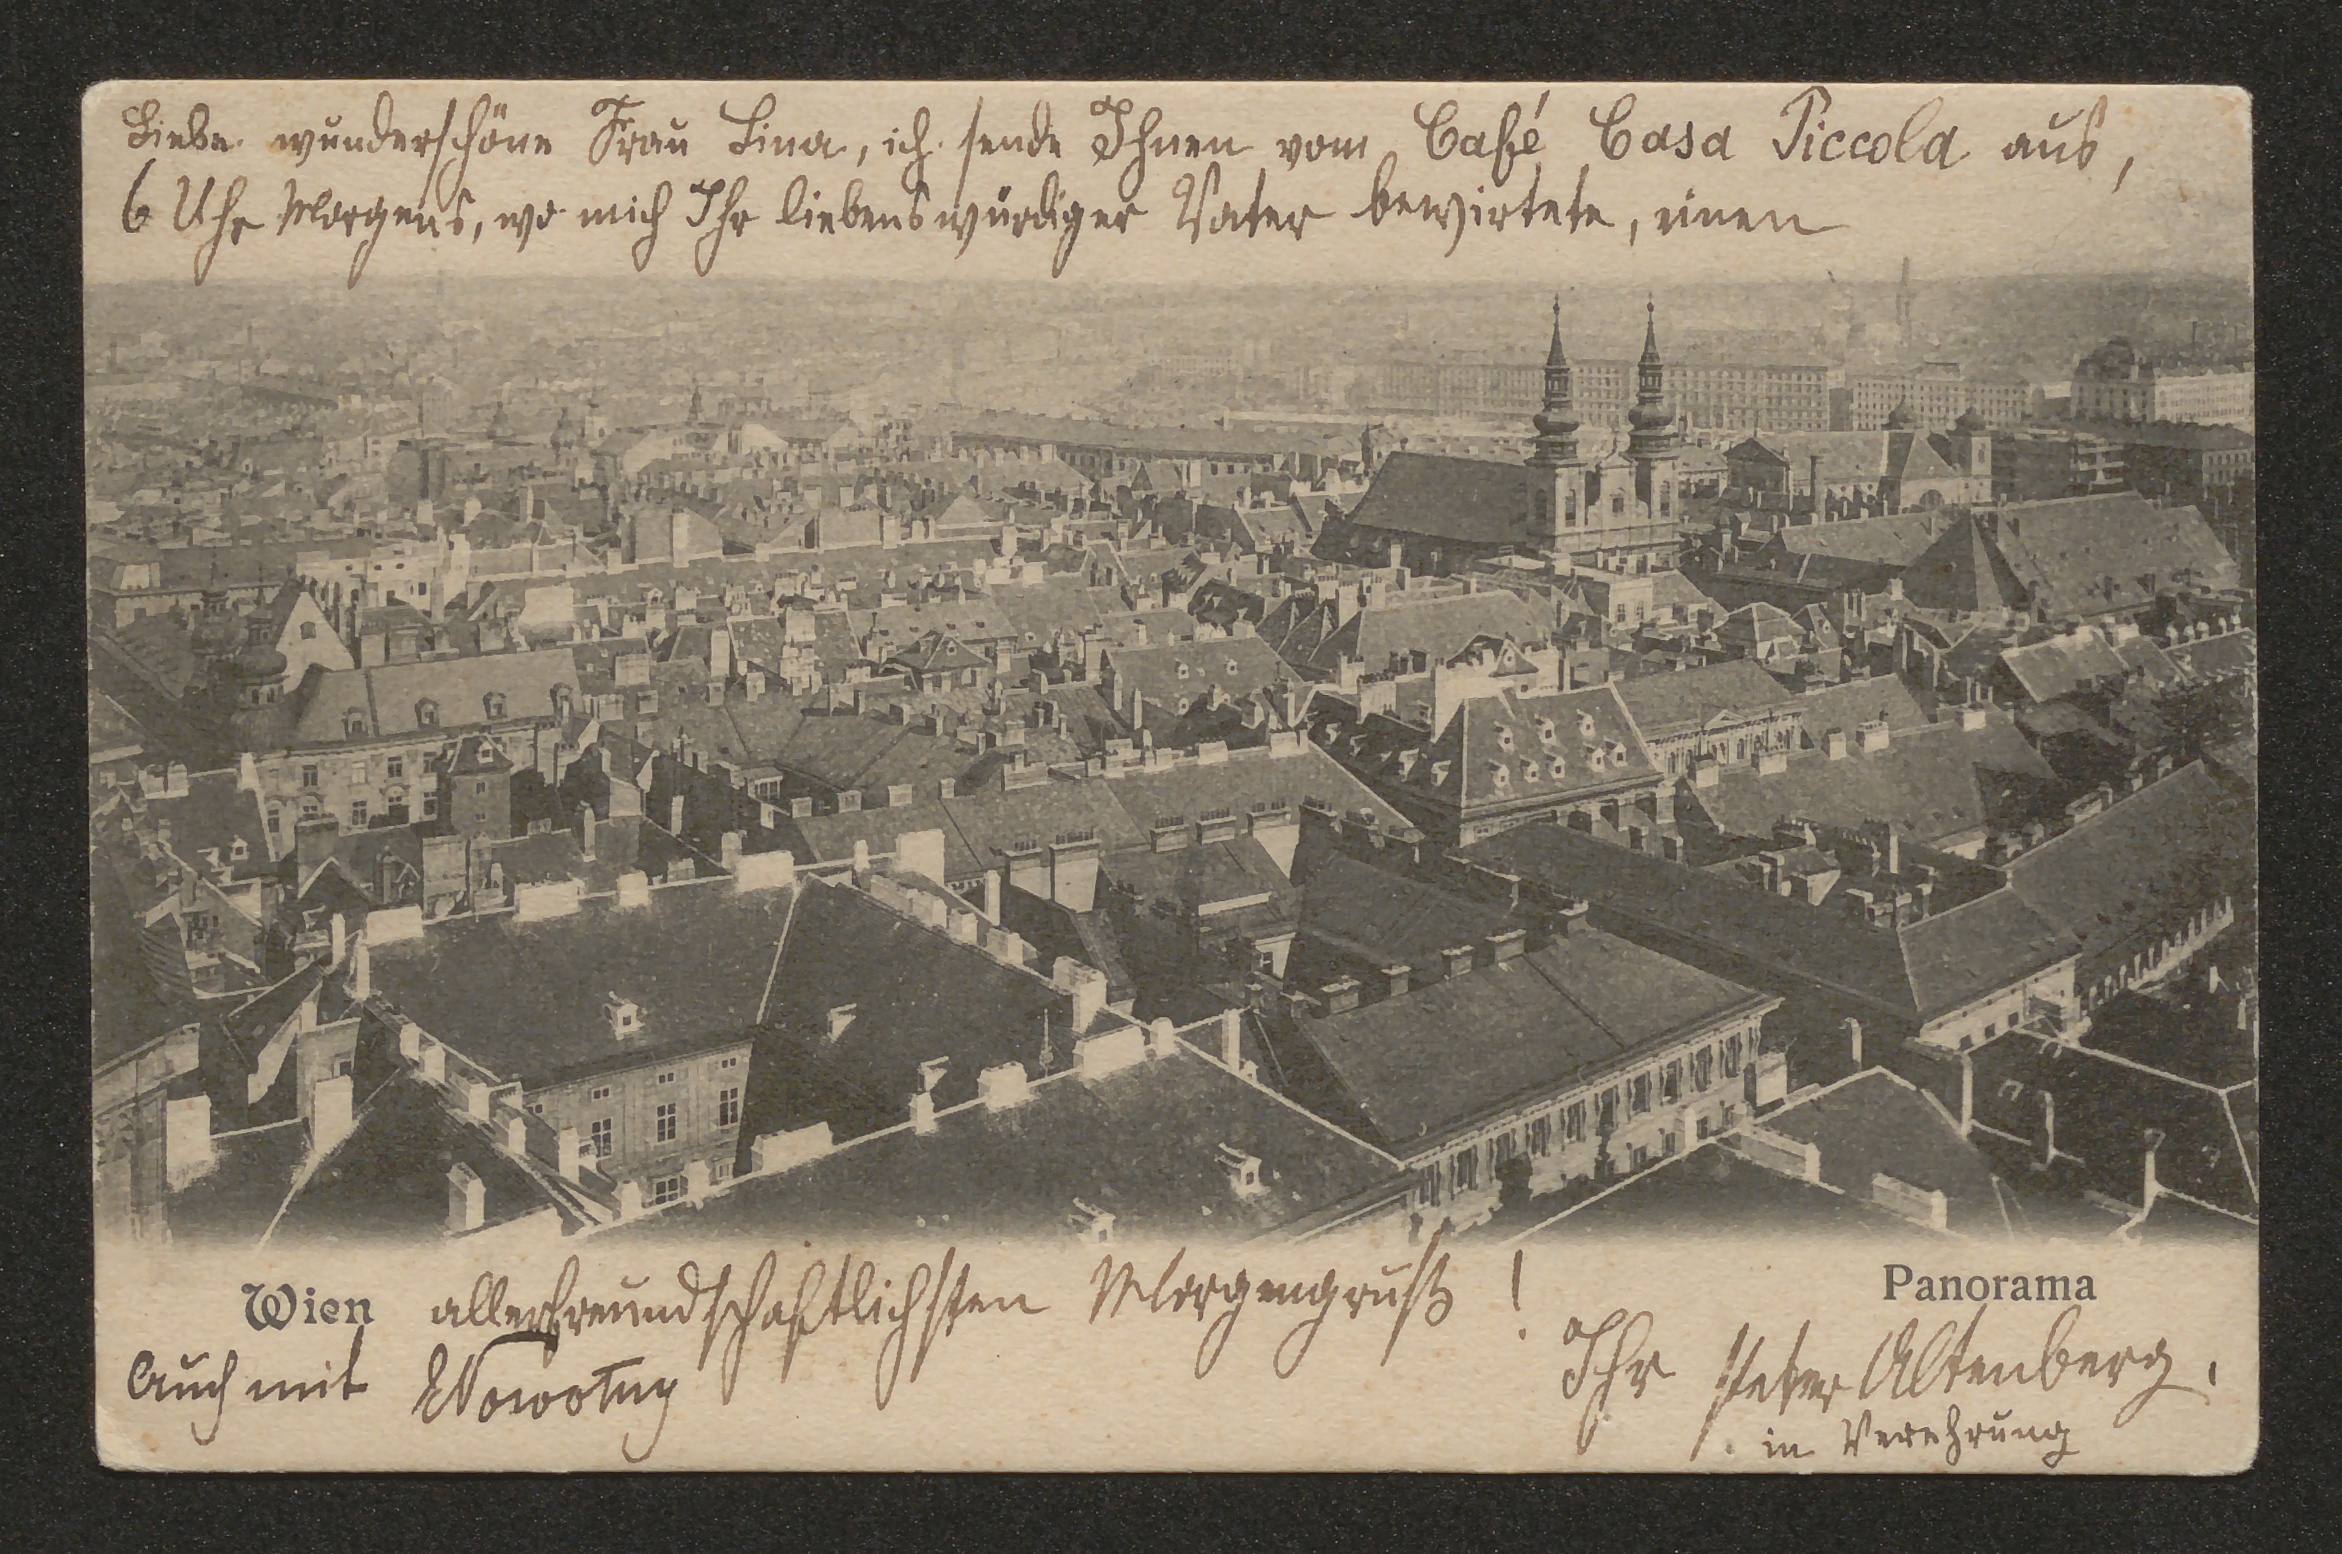 Liebe wunderschöne Frau Lina, ich sende Ihnen vom Café Casa Piccola aus,
6 Uhr Morgens, wo mich Ihr liebenswürdiger Vater bewirtete, einen
Wien allerfreundschaftlichsten Morgengruß ! Panorama
Auch mit Nowotny Ihr Peter Altenberg.
in Verehrung